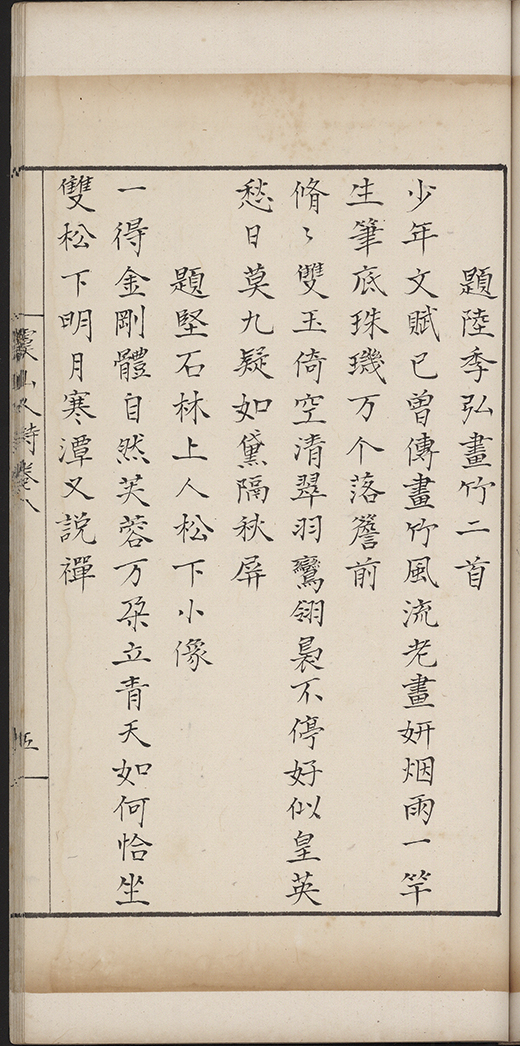 題陸季弘畫竹二首
少年文賦已曾傳畫竹風流老畫妍烟雨一竿
生筆底珠璣万个落簷前
脩〻雙玉倚空清翠羽鸞翎裊不停好似皇英
愁日莫九疑如黛隔秋屏
題堅石林上人松下小像
一得金剛體自然芙蓉万朶立青天如何恰坐
雙松下明月寒潭又說禪